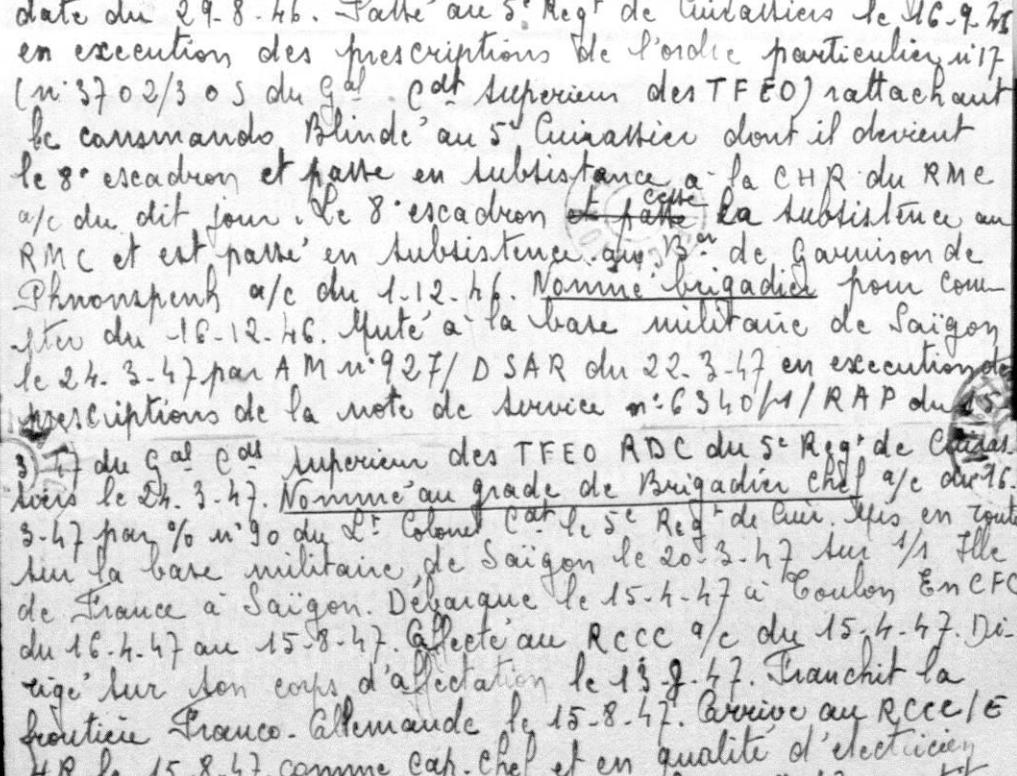 date du 29-8-46. Passé au 5e Regt de Cuirassiers le 16-9-46
en execution des prescriptions de l'ordre particulier n°17
(n°3702/3 o S du Gal Cdt superieur des TFEO) rattachant
le commando Blindé au 5e Cuirassier dont il devient
le 8e escadron et passe en subsistance à la CHR du RMC
a/c du dit jour. Le 8e escadron et passe cesse la subsistence au
RMC et est passé en subsistence au Bon de Garnison de
Phnompenh a/c du 1-12-46. Nommé brigadier pour com-
pter du 16-12-46. Muté à la base militaire de Saïgon
le 24-3-47 par AM n°927/DSAR du 22-3-47 en execution de
prescriptions de la note de service n°6340/1/RAP du 15
3-47 du Gal Cdt superieur des TFEO RDC du 5e Regt de Cuiras-
siers le 24-3-47. Nommé au grade de Brigadier chef a/c du 16-
3-47 par % n°90 du Lt Colonel Cdt le 5e Regt de Cuir. Mis en route
sur la base militaire de Saïgon le 20-3-47 sur s/s Ille
de France à Saïgon. Débarque le 15-4-47 à Toulon En CFC
du 16-4-47 au 15-8-47. Affecté au RCCC a/c du 15-4-47. Di-
rigé sur son corps d'affectation le 13-8-47. Franchit la
frontière Franco-Allemande le 15-8-47. Arrivé au RCCC/E
4R le 15-8-47 comme cap-chef et en qualité d'electricien